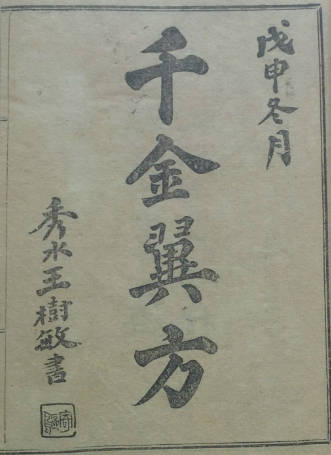 戊申冬月
千金翼方
秀水王樹敏書